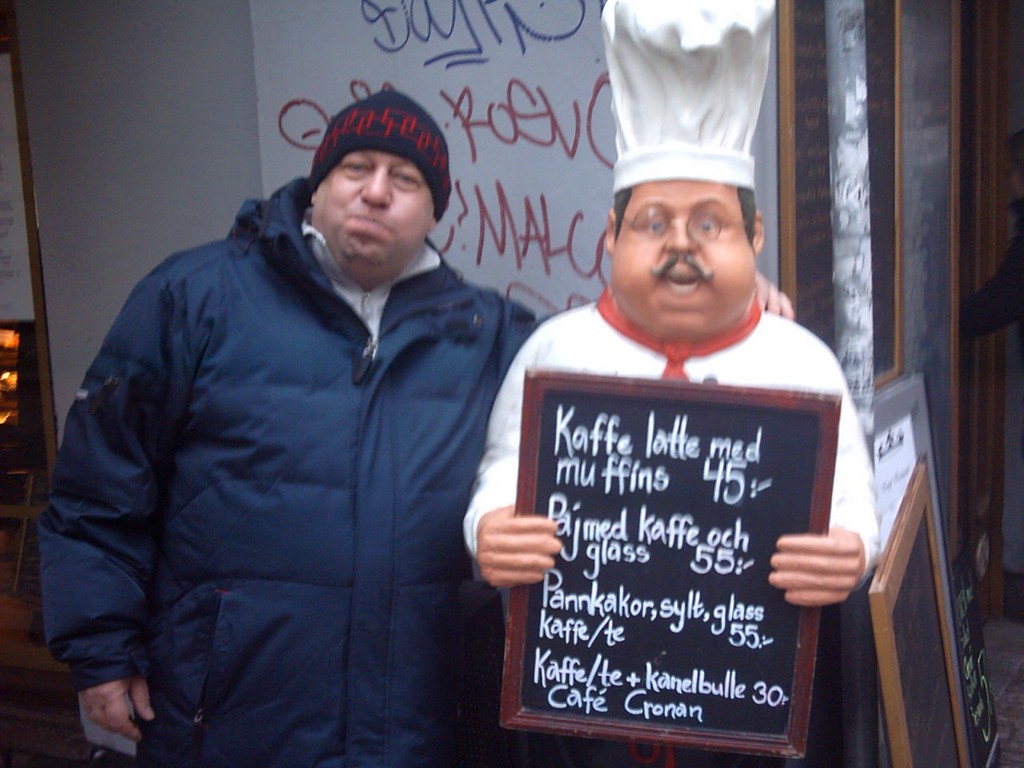 ROSV
?MALCO
Kaffe latte med
muffins 45:-
Paj med kaffe och
glass 55:-
Pannkakor, sylt, glass
kaffe/te 55:-
Kaffe/te + kanelbulle 30:-
Café Cronan